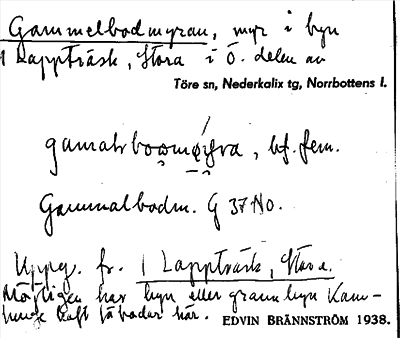 Gammelbodmyran, myr i byn
1 Lappträsk, Stora i Ö. delen av
Töre sn, Nederkalix tg, Norrbottens l.
, bf. fem.
Gammalbodm. G 37 NO.
Uppg. fr. 1 Lappträsk, Stora.
Möjligen har byn eller grannbyn Kam-
lunge haft fäbodar här.
EDVIN BRÄNNSTRÖM 1938.